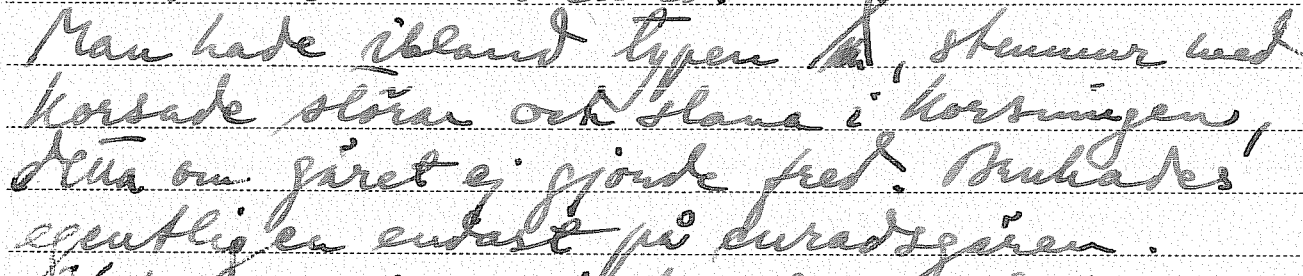 Man hade ibland typen , stenmur med
korsade störar och slana i korsningen,
detta om gäret ej gjorde fred. Användes
egentligen endast på enradsgären.